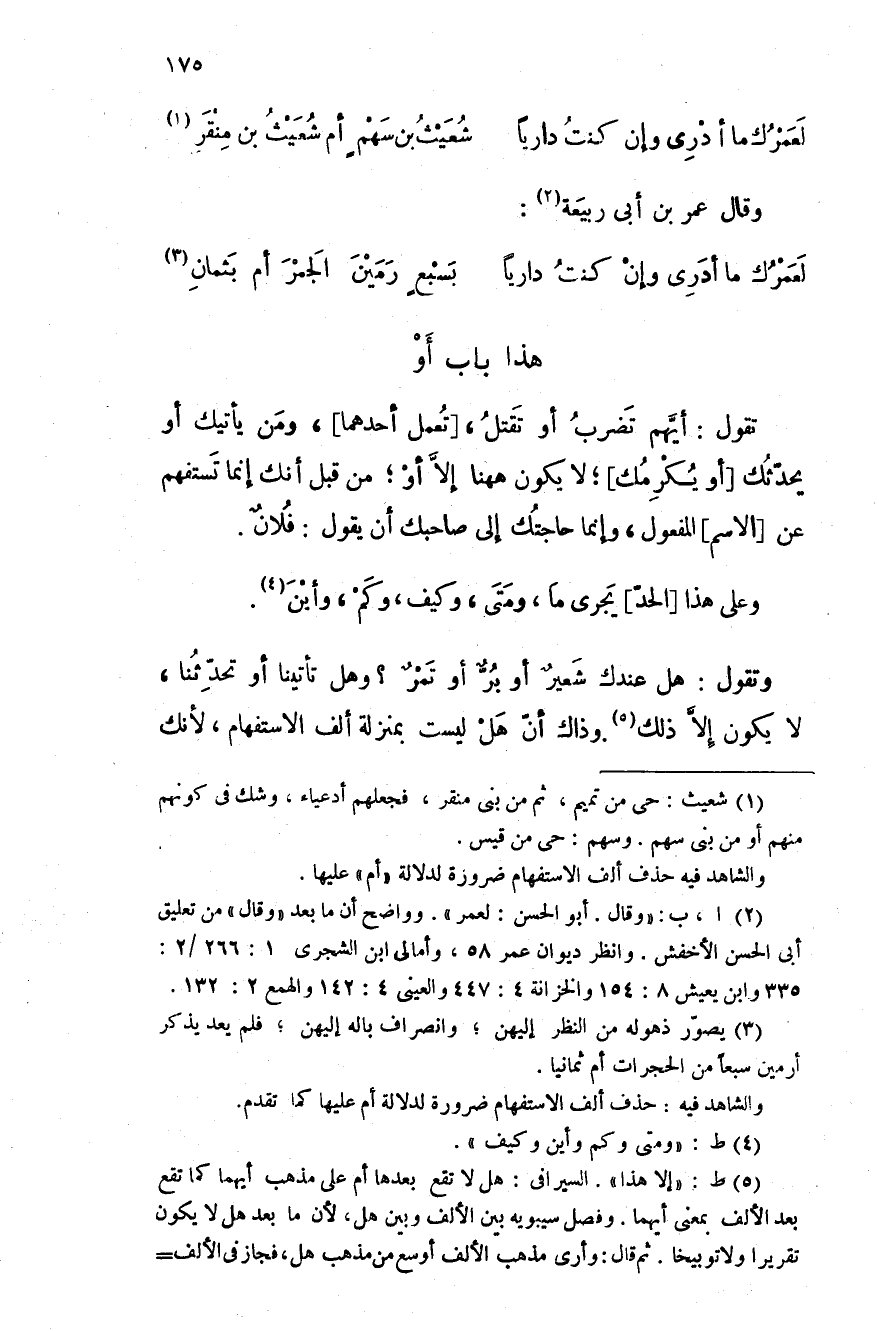 ١٧٥
لَعَمْرُك ما أدْرِى وإن كنتُ دارياً شُعَيْثُ بن سَهْمٍ أم شُعَيْثُ بن مِنْقَرِ (١)
وقال عمر بن أبى ربيعَة(٢) :
لَعَمْرُك ما أدَرِى وإنْ كنتُ دارياً بَسَبْعٍ رَمَيْنَ الجَمْرَ أم بَثمانِ(٣)
هذا باب أَوْ
تقول : أيَّهم تَضربُ أو تَقتلُ ، [تُعمل أحدهما] ، ومَن يأتيك أو
يحدّثُك [أو يُكْرِمُك] ؛ لا يكون ههنا إلاَّ أوْ ؛ من قبل أنك إنما تَستفهم
عن [الاسم] المفعول ، وإنما حاجتُك إلى صاحبك أن يقول : فُلانٌ .
وعلى هذا [الحدّ] يَجرى مَا ، ومَتَى ، وكيف ، وكَمْ ، وأيْنَ(٤) .
وتقول : هل عندك شَعيرٌ أو بُرٌّ أو تَمْرٌ ؟ وهل تأتينا أو تحدّثُنا ،
لا يكون إلاَّ ذلك(٥) . وذاك أنّ هَلْ ليست بمنزلة ألف الاستفهام ، لأنك
(١) شعيث : حى من تميم ، ثم من بنى منقر ، فجعلهم أدعياء ، وشك فى كونهم
منهم أو من بنى سهم . وسهم : حى من قيس .
والشاهد فيه حذف ألف الاستفهام ضرورة لدلالة «أم» عليها .
(٢) ا ، ب : «وقال . أبو الحسن : لعمر» . وواضح أن ما بعد «وقال» من تعليق
أبى الحسن الأخفش . وانظر ديوان عمر ٥٨ ، وأمالى ابن الشجرى ١ : ٢٦٦ / ٢ :
٣٣٥ وابن يعيش ٨ : ١٥٤ والخزانة ٤ : ٤٤٧ والعينى ٤ : ١٤٢ والهمع ٢ : ١٣٢ .
(٣) يصوّر ذهوله من النظر إليهن ؛ وانصراف باله إليهن ؛ فلم يعد يذكر
أرمين سبعاً من الجمرات أم ثمانيا .
والشاهد فيه : حذف ألف الاستفهام ضرورة لدلالة أم عليها كما تقدم.
(٤) ط : «ومتى وكم وأين وكيف » .
(٥) ط : «إلا هذا» . السيرافى : هل لا تقع بعدها أم على مذهب أيهما كما تقع
بعد الألف بمعنى أيهما . وفصل سيبويه بين الألف وبين هل ، لأن ما بعد هل لا يكون
تقريرا ولا توبيخا . ثم قال : وأرى مذهب الألف أوسع من مذهب هل ، فجاز فى الألف=